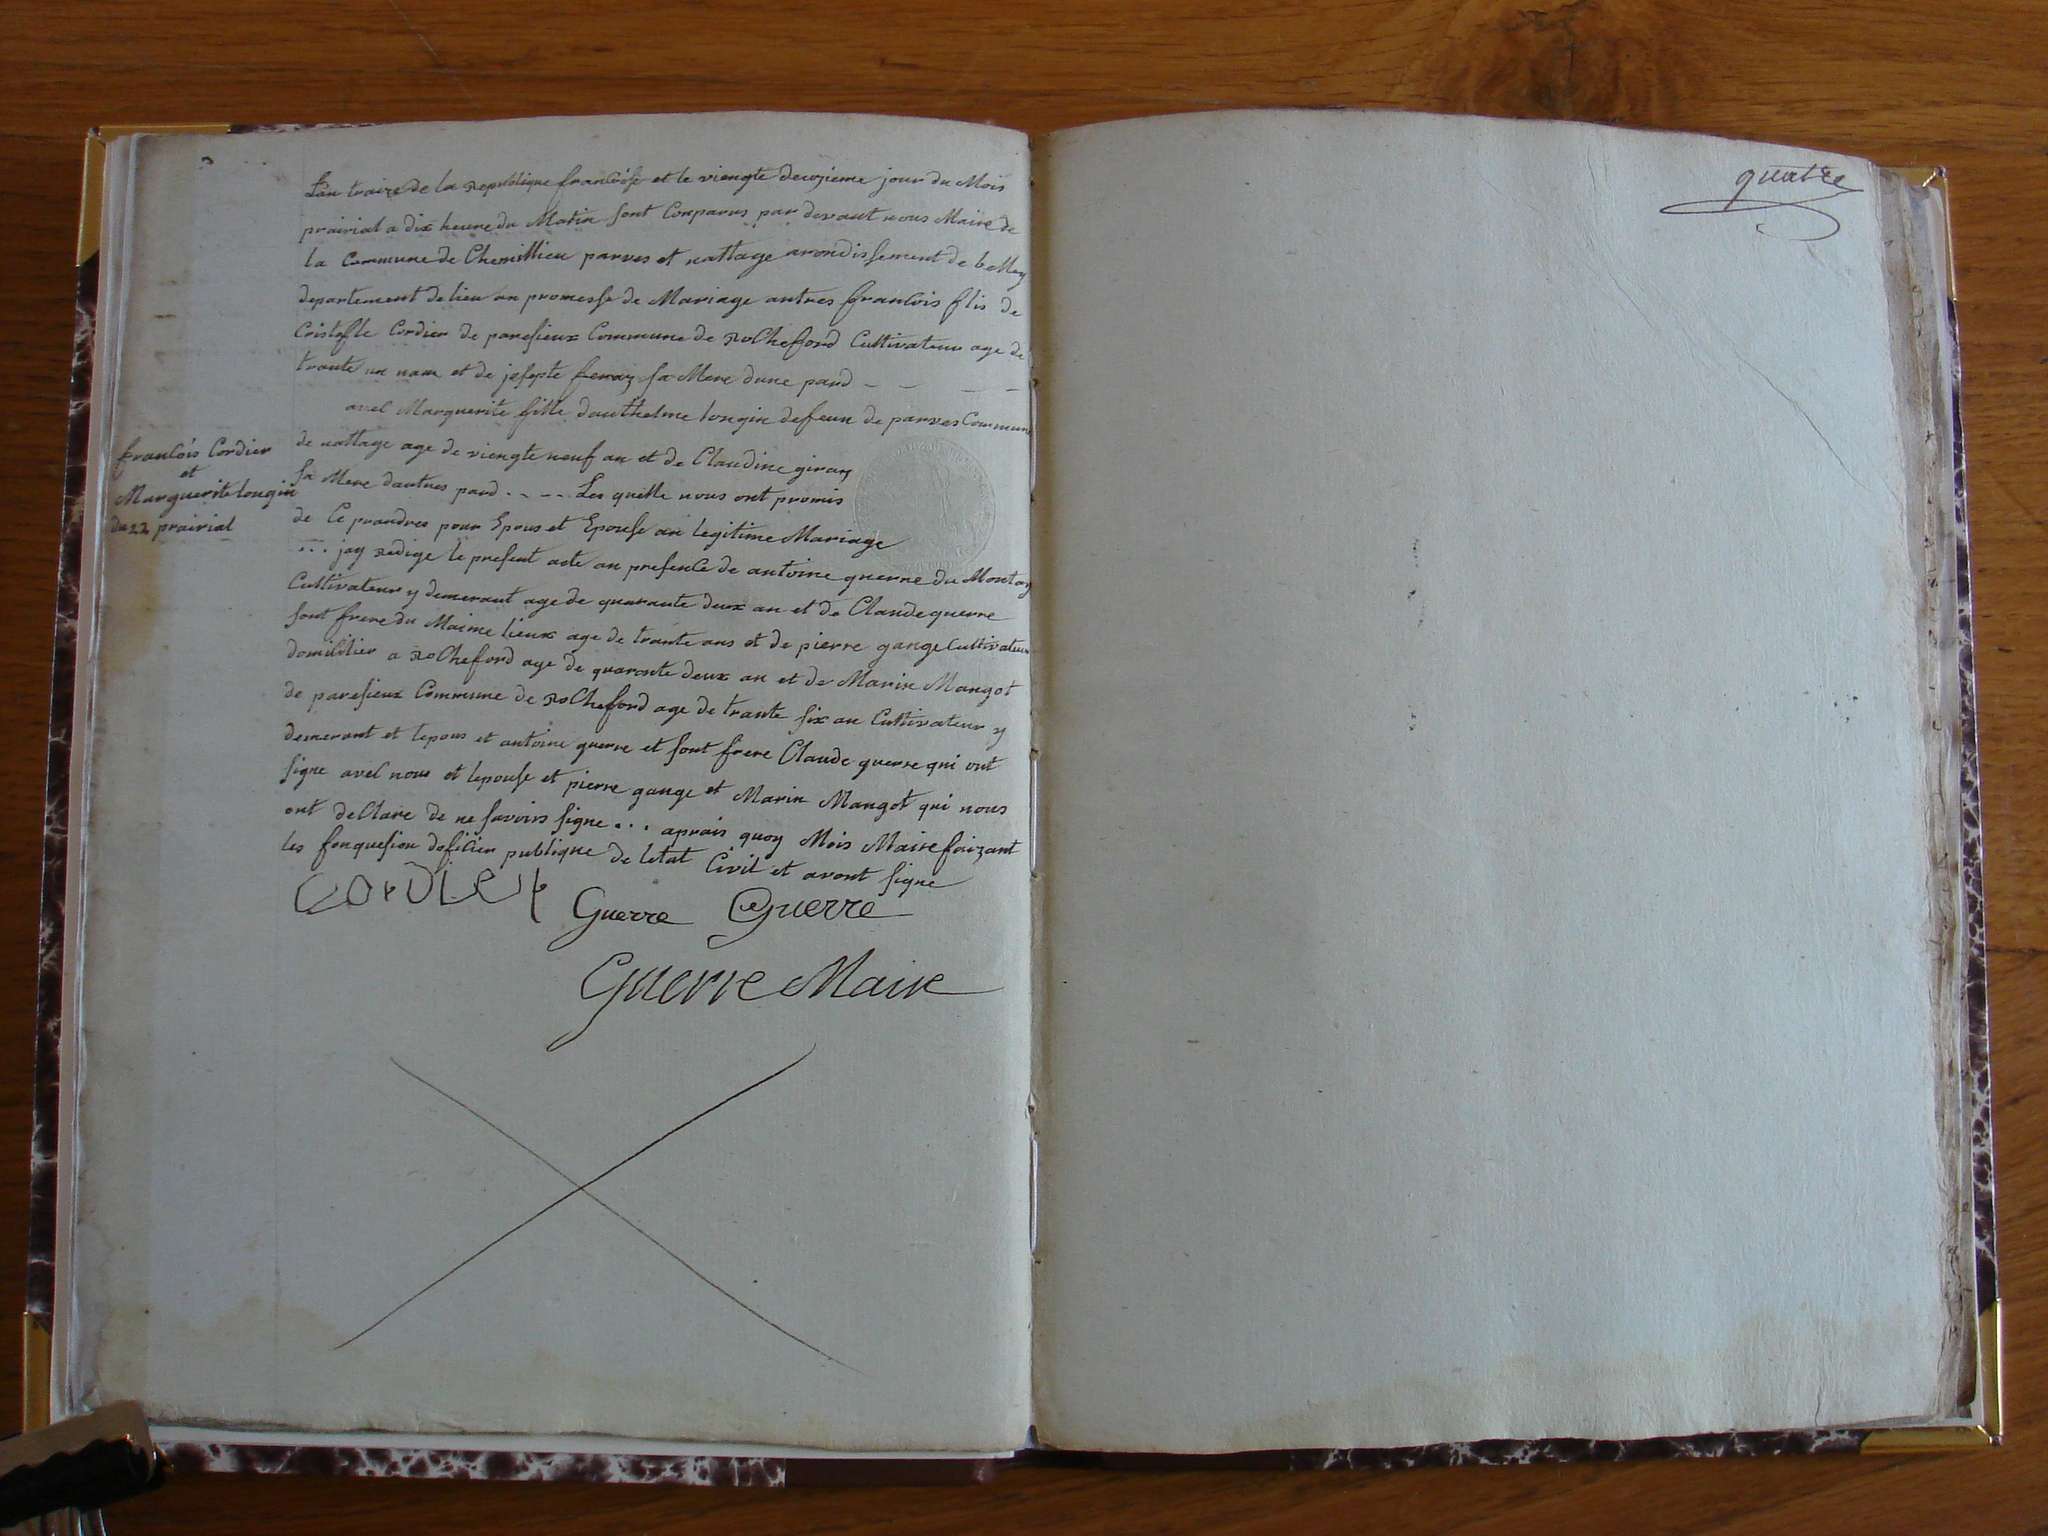 Lan traize de la republique francóise et le viengte deuxzieme jour du Mois
prairial a dix heure du Matin sont Conparus par devant nous Maire de
la Commune de Chemillieu parves et nattage arondissement de belley
departement de lieu an promesse de Mariage antres francois flis de
Cristofle Cordier de paresieux Commune de Rocheford Cultivateur age de
trante un nam et de josepte sa Mere dune pard - - - -
avel Marguerite fille dauthelme longin deffeun de parves Commune
francóis Cordier
et
Marguerite longin
du 22 prairial
de nattage age de viengte neuf an et de Claudine giray
sa Mere dautres pard . - - . Les quelle nous ont promis
de Ce prandres pour Epous et Epouse an legitime Mariage
... jay redige le present acte an presence de antoine guerre du Montay
Cultivateur y demerant age de quarante deux an et de Claude guerre
sont frere du Maime lieux age de trante ans et de pierre gange Cultivateur
domicilier a Rocheford age de quarante deux an et de Marin Mangot
de paresieux Commune de Rocheford age de trante six an Cultivateur y
demerant et lepous et antoine guerre et sont frere Claude guerre qui ont
signe avel nous et lepouse et pierre gange et Marin Mangot qui nous
ont deClare de ne savoirs signe ... aprais quoy Mois Maire faizant
les fonquesion doficier publique de letat Civil et avont signe
CORDIER Guerre CGuerre
Guerre Maire
quatre